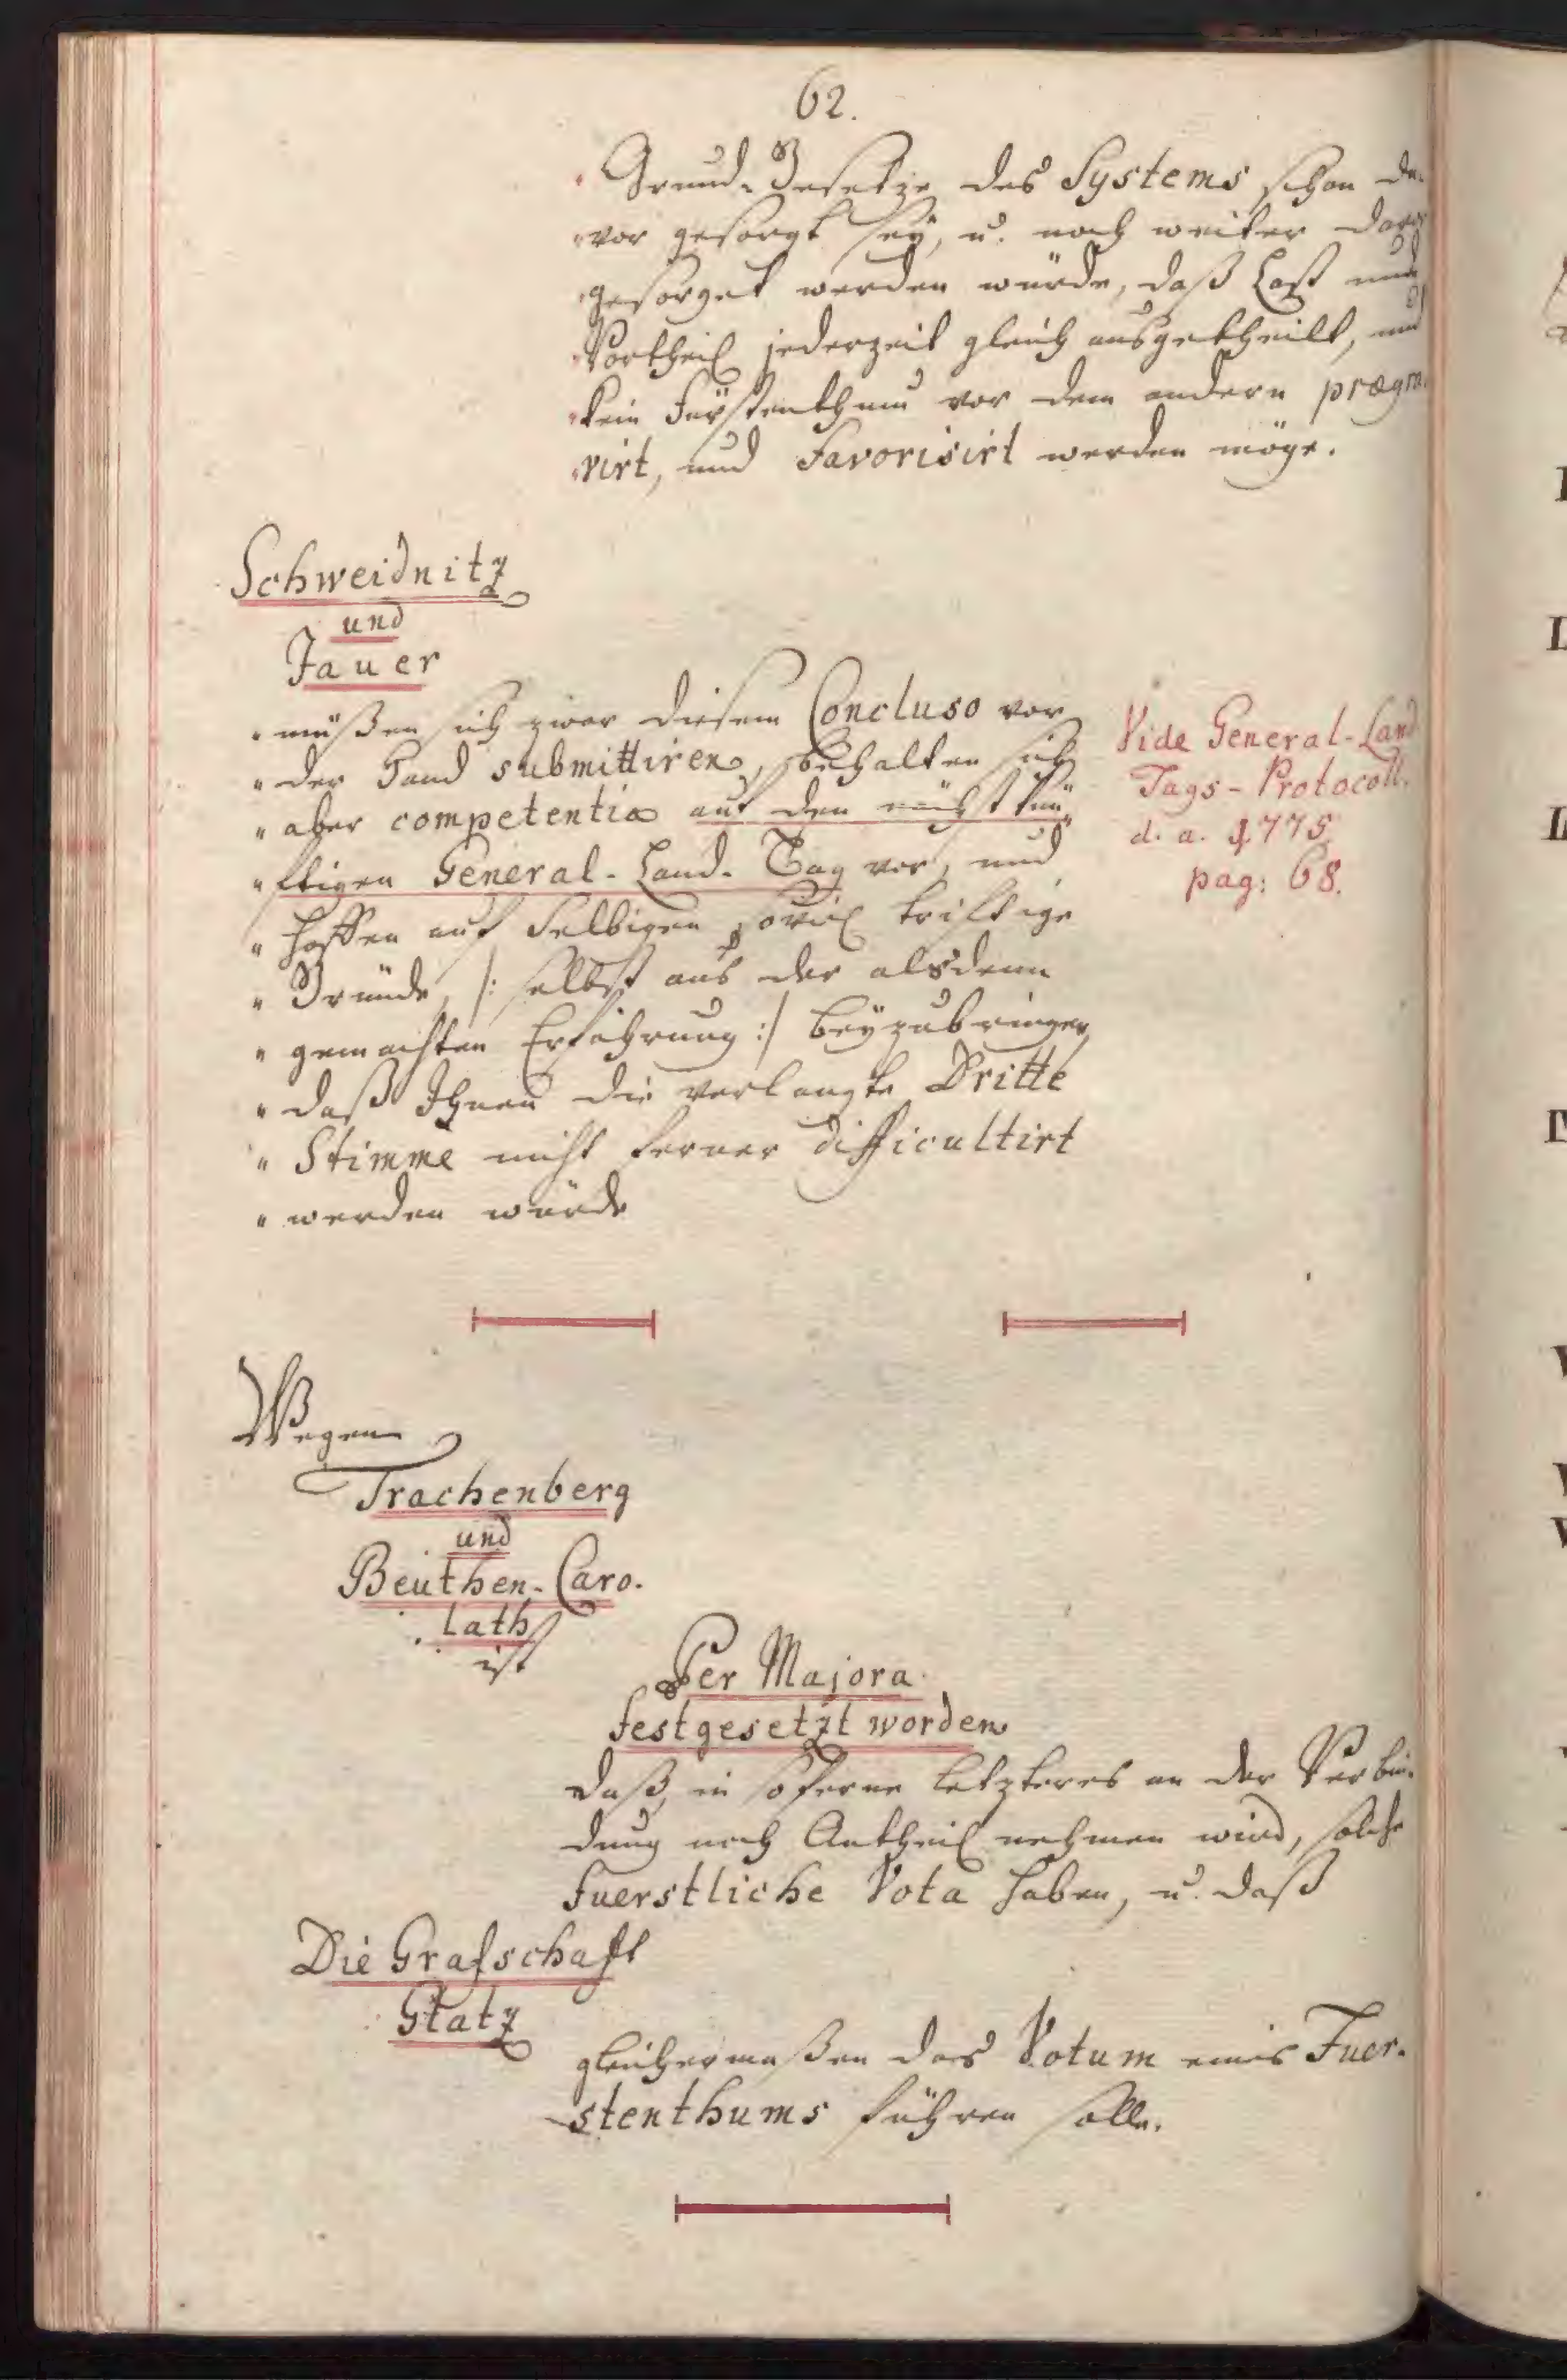 62.
"Grund-Gesetze des Systems schon da-
"vor gesorgt sey, u. noch weiter davor
"gesorget werden würde, daß Last und
"Vortheil jederzeit gleich ausgetheilt, und
"kein Fürstenthum vor dem andern prægra-
"virt, und Favorisirt werden möge.
Schweidnitz
und
Jauer
"müßen sich zwar diesem Concluso vor
"der Hand submittiren, behalten sich
"aber competentia auf den nächst kün-
"ftigen General-Land-Tag vor, und
"hoffen auf Selbigen soviel triftige
"Gründe, /: selbst aus der alsdenn
"gemachten Erfahrung :/ beyzubringen,
"daß Ihnen die verlangte Dritte
"Stimme nicht ferner difficultirt
"werden würde
Vide General-Land
Tags-Protocoll.
d. a. 1775
pag: 68.
Wegen
Trachenberg
und
Beuthen-Caro-
lath
ist
Per Majora
festgesetzt worden
daß, in soferne letzteres an der Verbin-
dung noch Antheil nehmen wird, solche
fuerstliche Vota haben, u. daß
Die Grafschaft
Glatz
gleichermaßen das Votum eines Fuer-
stenthums führen solle.